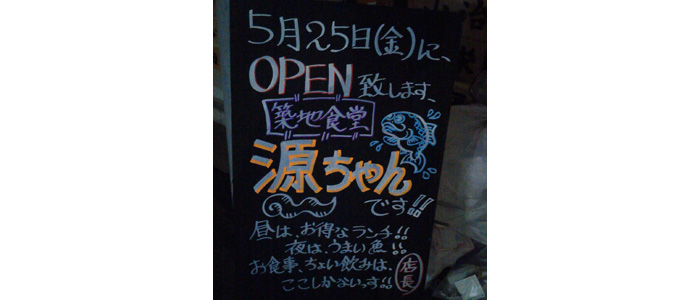 5月25日(金)に、
OPEN致します、
築地食堂
源ちゃん
です!!
昼は、お得なランチ!!
夜は、うまい魚!!
お食事、ちょい飲みは、
ここしかないっす!!
店長